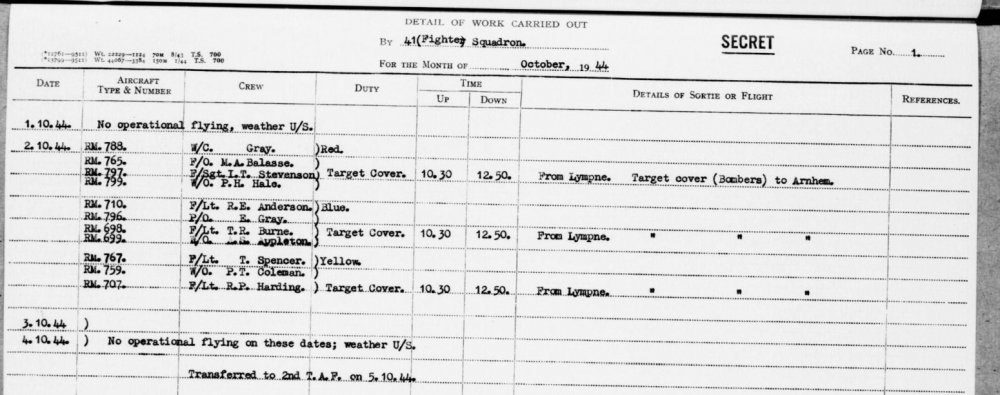 DETAIL OF WORK CARRIED OUT
By 41(Fighter) Squadron.
SECRET
PAGE No. 1.
(*12761—9511) Wt. 22229—1124 70M 8/43 T.S. 700
(*13799—9511) Wt. 44067—3384 150M 1/44 T.S. 700
FOR THE MONTH OF October, 1944
DATE AIRCRAFT TYPE & NUMBER CREW DUTY TIME UP DOWN DETAILS OF SORTIE OR FLIGHT REFERENCES.
1.10.44. No operational flying, weather U/S.
2.10.44. RM.788. W/C. Gray. )Red.
RM.765. F/O. M.A.Balasse. )
RM.797. F/Sgt.I.T. Stevenson) Target Cover. 10.30 12.50. From Lympne. Target cover (Bombers) to Arnhem.
RM.799. W/O. P.H. Hale. )
RM.710. F/Lt. R.E. Anderson.)Blue.
RM.796. P/O. E. Gray. )
RM.698. F/Lt. T.R. Burne. ) Target Cover. 10.30 12.50. From Lympne. " " "
RM.699. W/O. Appleton.)
RM.767. F/Lt. T. Spencer. )Yellow.
RM.759. W/O. P.T. Coleman. )
RM.707. F/Lt. R.P. Harding. ) Target Cover. 10.30 12.50. From Lympne. " " "
3.10.44 )
4.10.44. ) No operational flying on these dates; weather U/S.
Transferred to 2nd T.A.F. on 5.10.44.